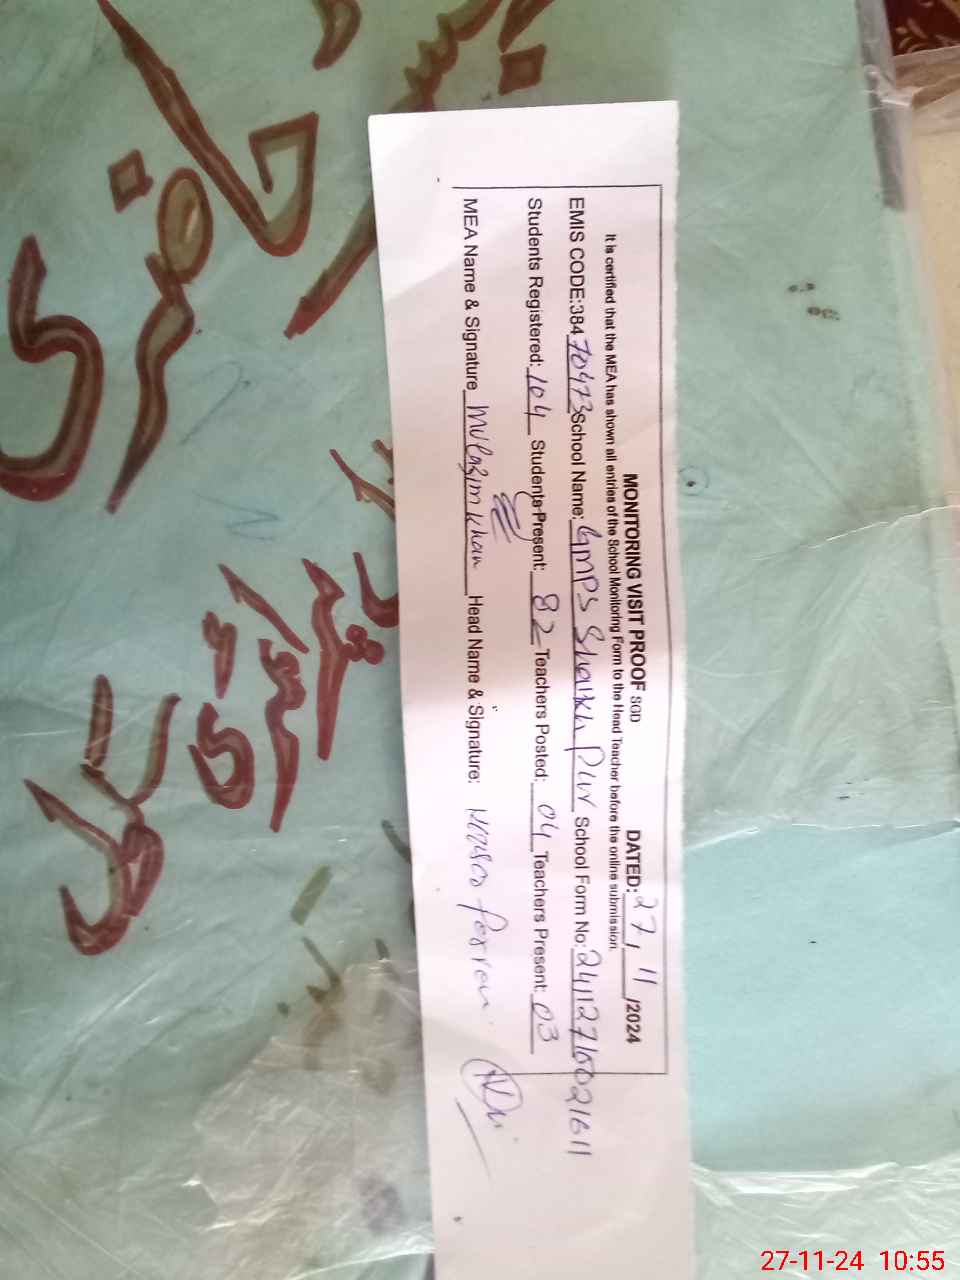 حاضری
MONITORING VISIT PROOF SGD DATED: 27/11/2024
It is certified that the MEA has shown all entries of the School Monitoring Form to the Head Teacher before the online submission.
EMIS CODE:38470473 School Name: GMPS Shaikh Pur School Form No: 241127160021611
Students Registered: 104 Students Present: 82 Teachers Posted: 04 Teachers Present: 03
MEA Name & Signature Mulazim Khan Head Name & Signature:
27-11-24 10:55